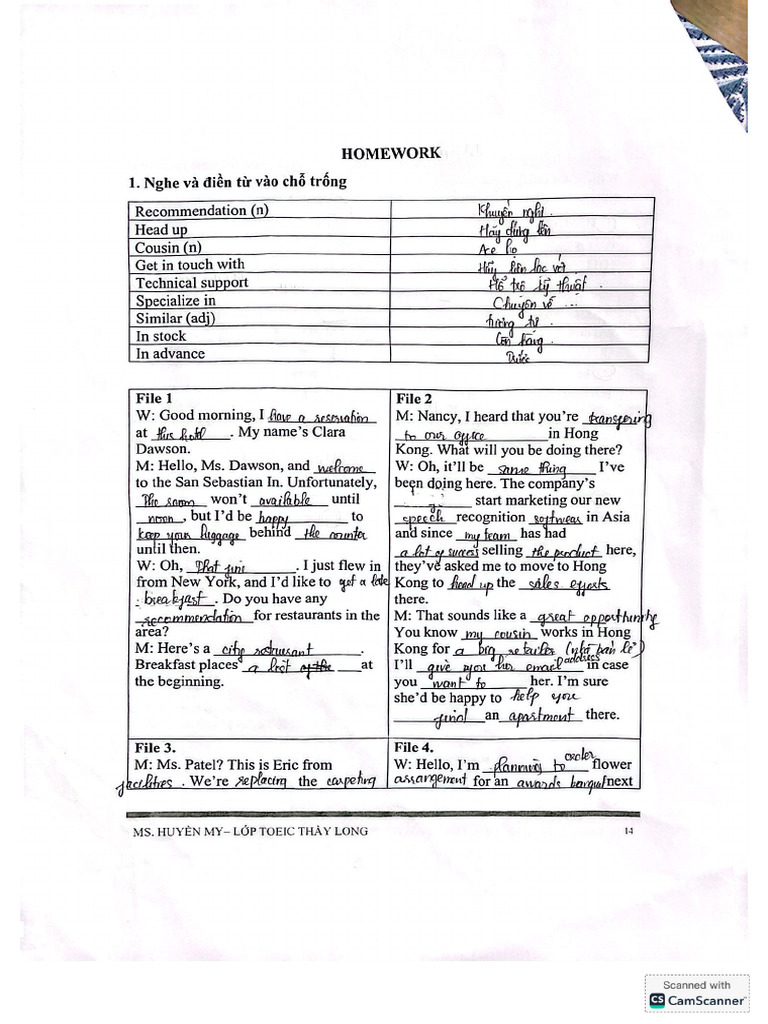 HOMEWORK
1. Nghe và điền từ vào chỗ trống
Recommendation (n) Khuyến nghị
Head up Hãy đứng lên
Cousin (n)
Get in touch with Hãy liên lạc với
Technical support Hỗ trợ kỹ thuật
Specialize in Chuyên về ...
Similar (adj) tương tự
In stock Còn hàng
In advance Trước
File 1
W: Good morning, I have a reservation
at this hotel. My name's Clara
Dawson.
M: Hello, Ms. Dawson, and welcome
to the San Sebastian In. Unfortunately,
The room won't available until
noon, but I'd be happy to
keep your luggage behind the counter
until then.
W: Oh, That fine. I just flew in
from New York, and I'd like to get a late
breakfast. Do you have any
recommendation for restaurants in the
area?
M: Here's a city restaurant.
Breakfast places a list of the at
the beginning.
File 2
M: Nancy, I heard that you're transfering
to our office in Hong
Kong. What will you be doing there?
W: Oh, it'll be same thing I've
been doing here. The company's
start marketing our new
speech recognition softwear in Asia
and since my team has had
a lot of success selling the product here,
they've asked me to move to Hong
Kong to head up the sales efforts
there.
M: That sounds like a great opportunity
You know my cousin works in Hong
Kong for a big retailer (nhà bán lẻ)
I'll give you her email address in case
you want to her. I'm sure
she'd be happy to help you
find an apartment there.
File 3.
M: Ms. Patel? This is Eric from
facilities. We're replacing the carpeting
File 4.
W: Hello, I'm planning to order flower
arrangement for an awards banquet next
MS. HUYỀN MY– LỚP TOEIC THẦY LONG 14
Scanned with
CS CamScanner